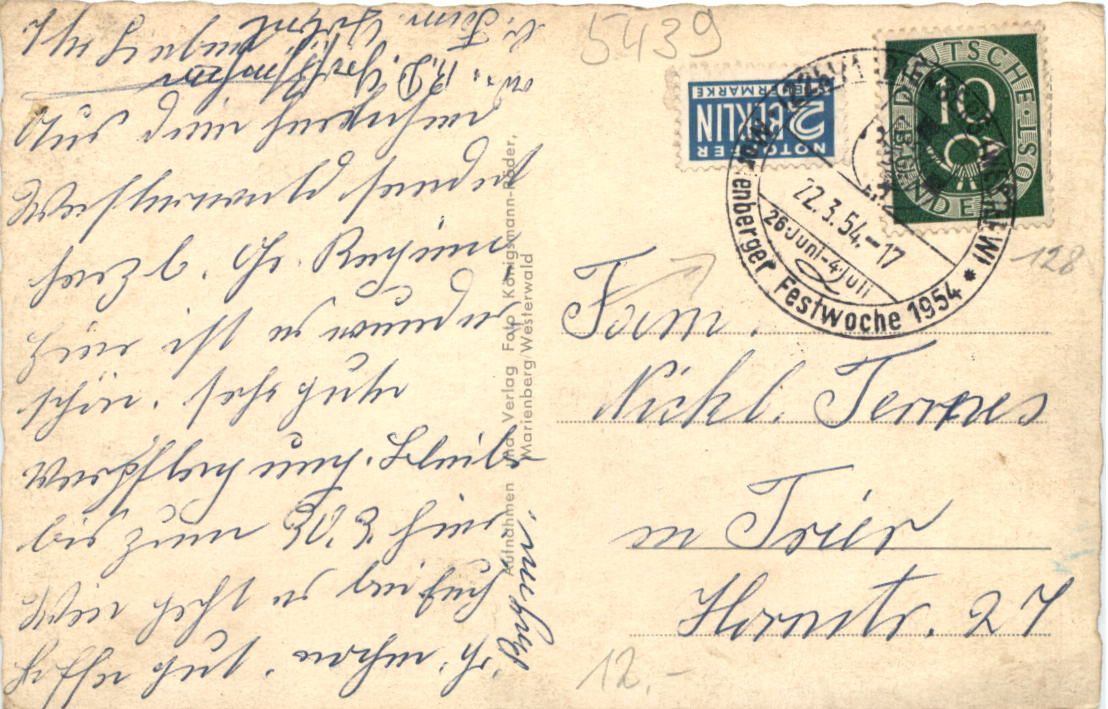 5439
Aus dem herrlichen
Westerwald sendet
herzl. Gr.
Hier ist es wunder
schön. sehr gute
Verpflegung. Bleibe
bis zum 30.3. hier
Wie geht es bei Euch
hoffe gut.
Aufnahmen und Verlag Foto Königsmann-Röder,
Marienberg/Westerwald
NOTOPFER
2 BERLIN
STEUERMARKE
DEUTSCHE
BUNDESPOST
10
22.3.54.-17
26 Juni-4 Juli
Marienberger Festwoche 1954
128
Fam.
Nickl. Terres
in Trier
Hornstr. 27
12.-